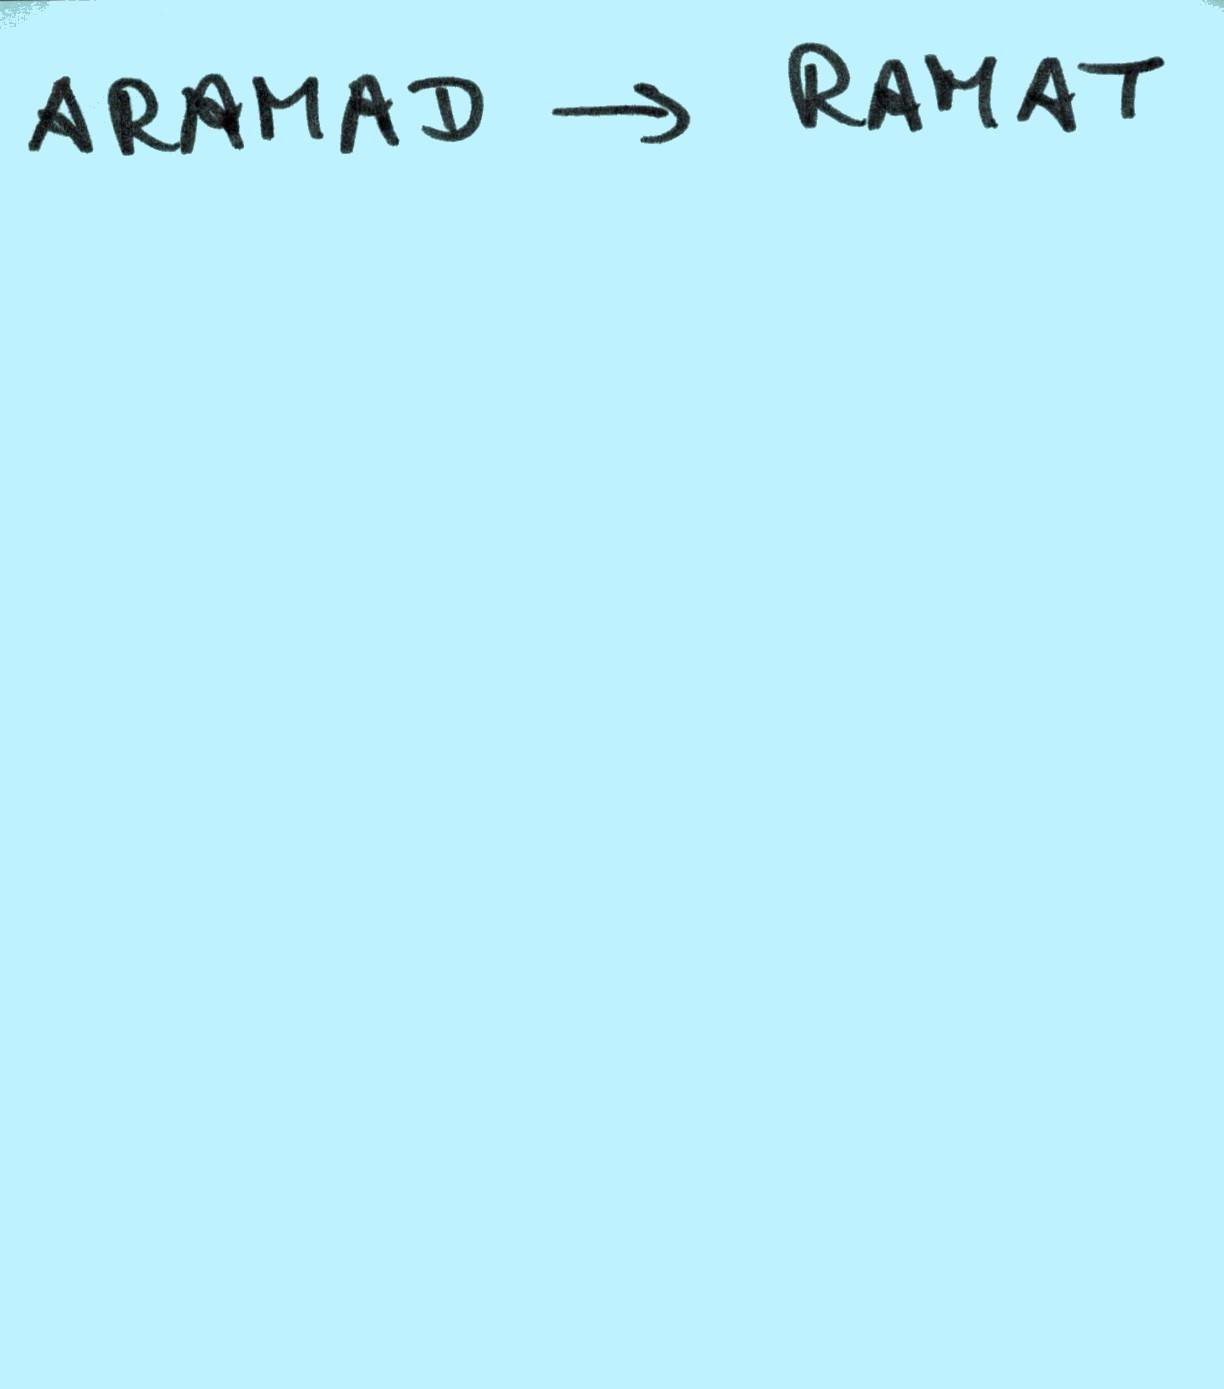 ARAMAD → RAMAT